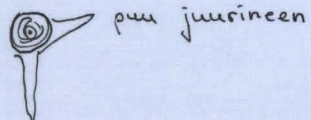 puu juurineen